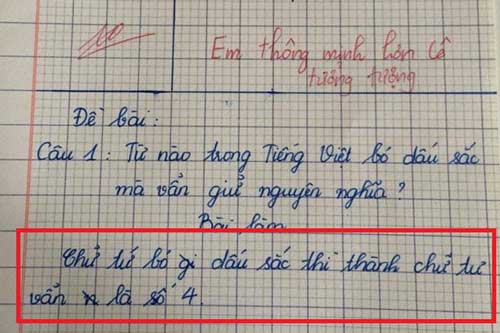 10
Em thông minh hơn Cô
tưởng tượng
Đề bài:
Câu 1: Từ nào trong Tiếng Việt bỏ dấu sắc
mà vẫn giữ nguyên nghĩa?
Bài làm
Chữ tứ bỏ gi dấu sắc thì thành chữ tư
vẫn n là số 4.